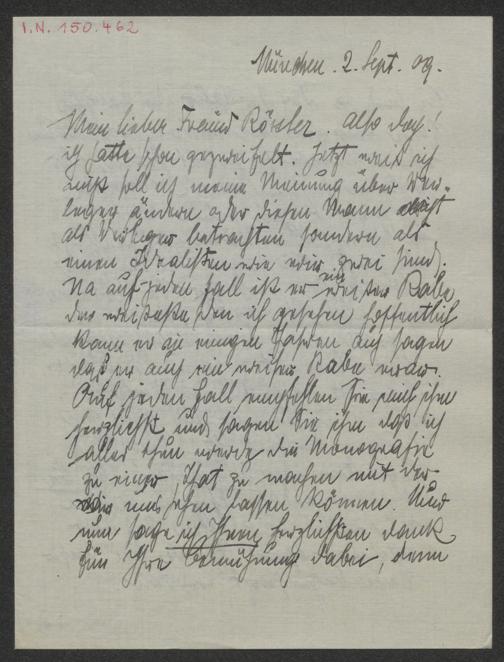 I.N. 150.462
München. 2. Sept. 09.
Mein lieber Freund Rössler. Also doch!
ich hatte schon gezweifelt. Jetzt weiß ich
nicht soll ich meine Meinung über Ver-
leger ändern oder diesen Mann nicht
als Verleger betrachten sondern als
einen Idealisten wie wir zwei sind.
Na auf jeden Fall ist er ein weißer Rabe
der weißeste den ich gesehen hoffentlich
kann er in einigen Jahren auch sagen
daß er auch ein weiser Rabe war.
Auf jeden Fall empfehlen Sie mich ihm
herzlichst und sagen Sie ihm daß ich
alles thun werde die Monografie
zu einer That zu machen mit der
wir uns sehen lassen können. Und
nun sage ich Ihnen herzlichsten dank
für Ihre Bemühung dabei, denn